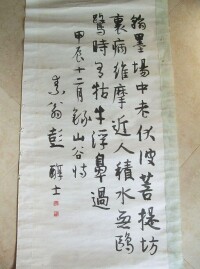 翰墨場中老伏波菩提坊
裏病維摩近人積水無鷗
鷺時有牯牛浮鼻過
甲辰十二月錄山谷詩
素翁彭醇士